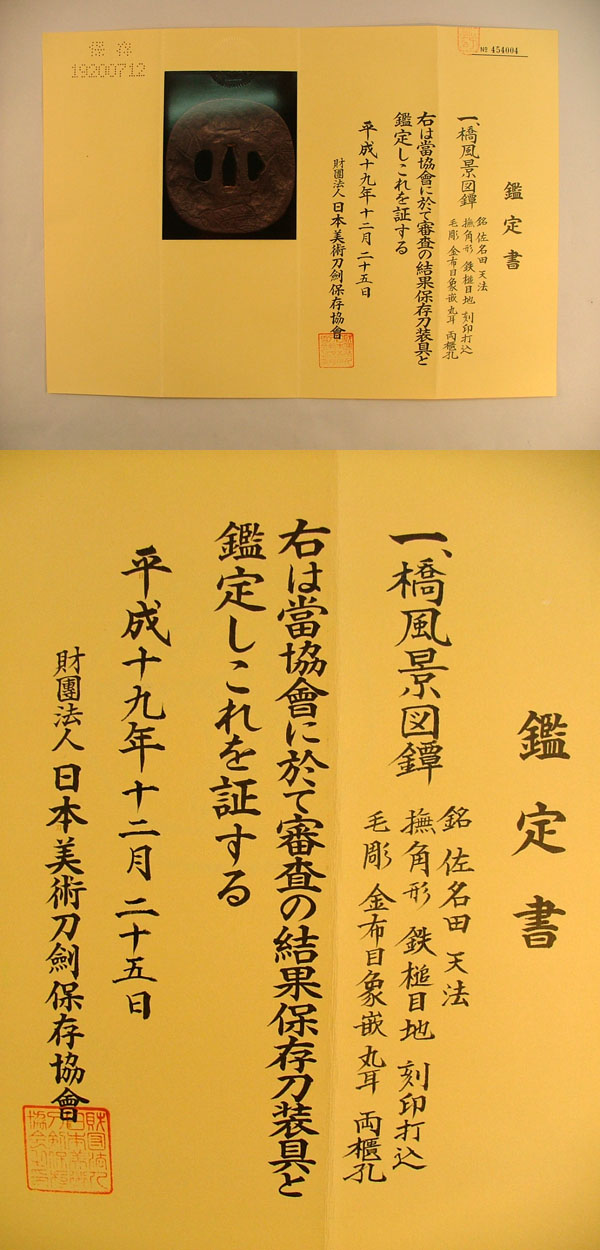 保存
19200712
№ 454004
鑑定書
一、橋風景図鐔
銘 佐名田 天法
撫角形 鉄槌目地 刻印打込
毛彫 金布目象嵌 丸耳 両櫃孔
右は當協會に於て審査の結果保存刀装具と
鑑定しこれを証する
平成十九年十二月二十五日
財團法人日本美術刀劍保存協會
鑑定書
一、橋風景図鐔
銘 佐名田 天法
撫角形 鉄槌目地 刻印打込
毛彫 金布目象嵌 丸耳 両櫃孔
右は當協會に於て審査の結果保存刀装具と
鑑定しこれを証する
平成十九年十二月二十五日
財團法人日本美術刀劍保存協會